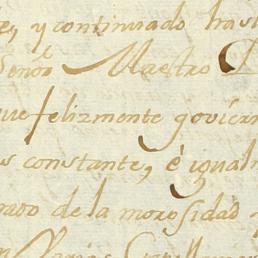 y continuado has
Señor Maestro
ue felizmente goviern
s constante, è igual
de la morosidad